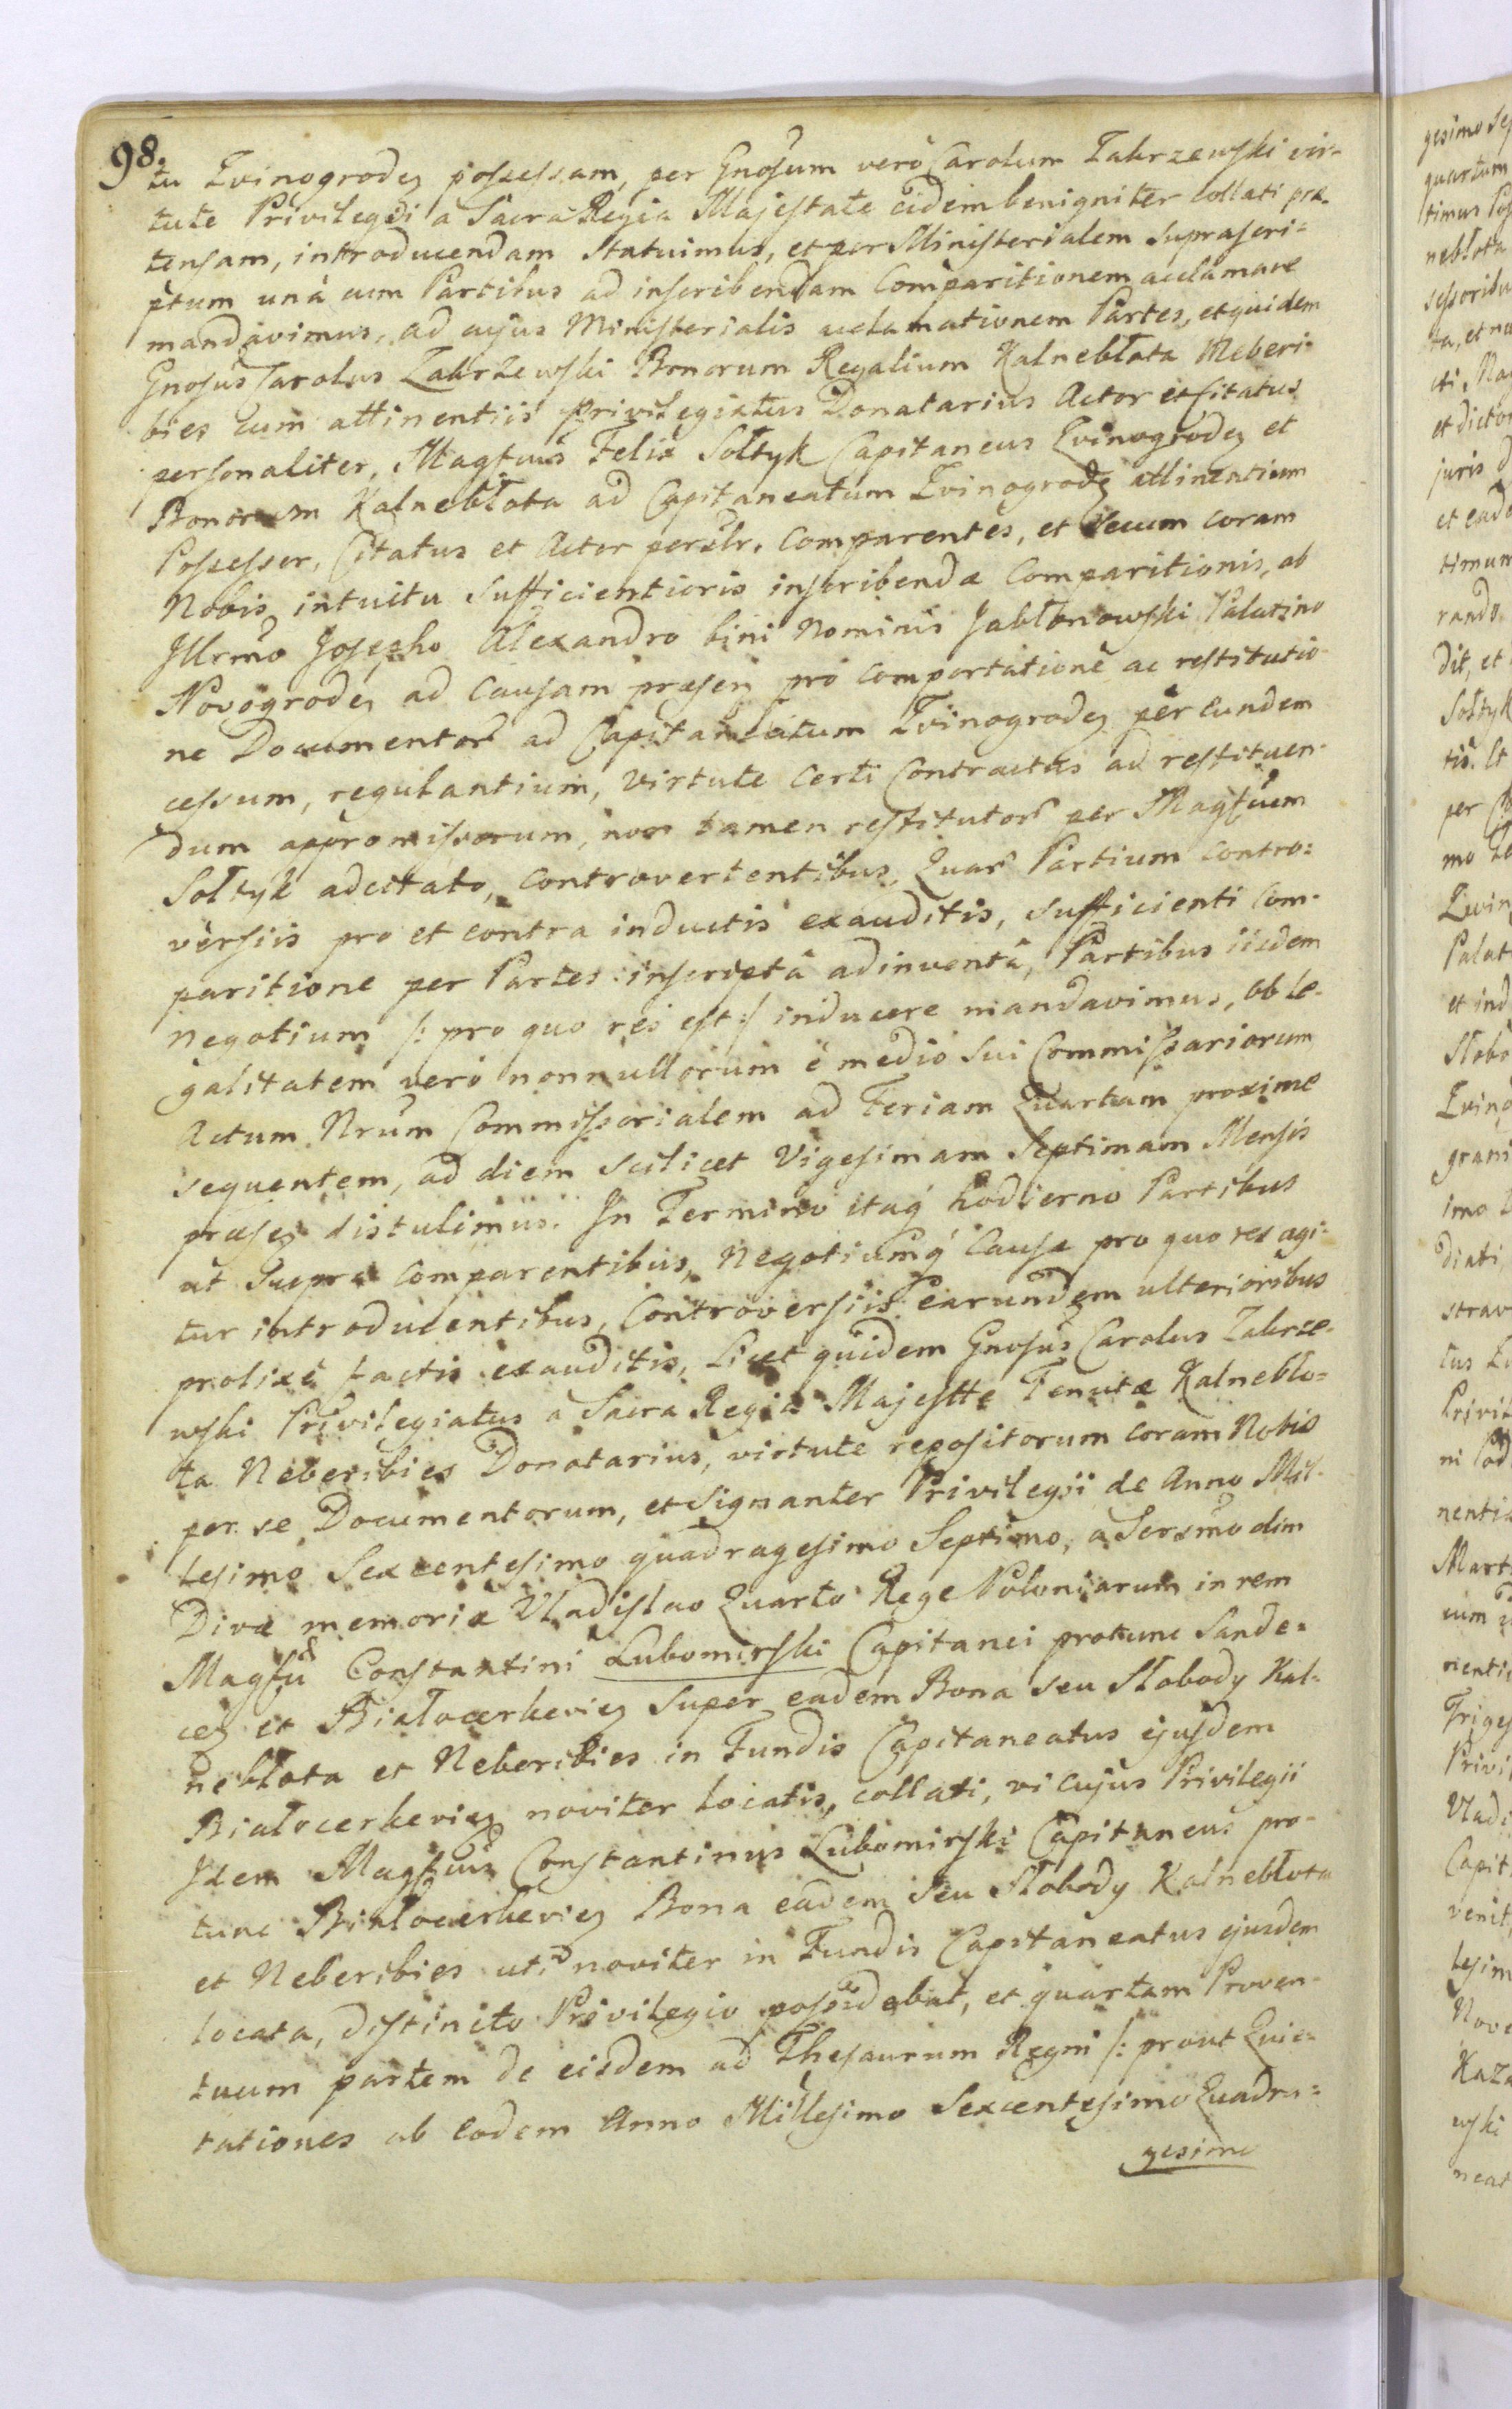 98.
tu Zvinogrodẽ possessam, per Gnosum verò Carolum Zakrzewski vir-
tute Privilegii a Sacra Regia Majestate eidem benigniter collati præ-
tensam, introducendam Statuimus, et per Ministerialem suprascri=
ptum unà cum Partibus ad inscribendam Comparitionem acclamare
mandavimus, ad cujus Ministerialis acclamationem Partes, et quidem
Gnosus Carolus Zakrzewski Bonorum Regalium Kalnebłota Neberi=
bies cum attinentiis Privilegiatus Donatarius Actor et Citatus
personaliter, Magfcus Felix Sołtyk Capitaneus Zvinogrodẽ et
Bonorum Kalnebłota ad Capitaneatum Zvinogrodẽ attinentium
Possessor, Citatus et Actor persłr. Comparentes, et secum coram
Nobis intuitu Sufficientioris inscribendæ Comparitionis, ab
Illrmo Josepho Alexandro bini Nominis Jabłonowski Palatino
Novogrodẽ ad Causam præseñ pro comportatione ac restitutio-
ne Documentor̃ ad Capitaneatum Zvinogrodẽ per eundem
cessum, regulantium, virtute certi Contractus ad restituen-
dum appromissorum, non tamen restitutor̃ per Magfcum
Sołtyk adcitato, controvertentibus, Quar̃ Partium contro=
versiis pro et contra inductis exauditis, sufficienti Com-
paritione per Partes inscripta adinventâ, Partibus iisdem
negotium /: pro quo res est :/ inducere mandavimus, ob le-
galitatem verò nonnullorum è medio sui Commissariorum
Actum Nrum Commissorialem ad Feriam Quartam proxime
sequentem, ad diem scilicet Vigesimam Septimam Mensis
præseñ distulimus. In Termino itaq́ hodierno Partibus
ut Supra Comparentibus, Negotiumq́ Causæ pro quo res agi-
tur introducentibus, Controversiis Earundem ulterioribus
prolixè factis exauditis, Licet quidem Gnosus Carolus Zakrze-
wski Privilegiatus a Sacra Regia Majestte Tenutæ Kalnebło=
ta Neberibies Donatarius, virtute repositorum coram Nobis
per se Documentorum, et Signanter Privilegii de Anno Mil-
lesimo Sexcentesimo quadragesimo Septimo, a Sersmo olim
Divæ memoriæ Vladislao Quarto Rege Poloniarum in rem
Magfci Constantini Lubomirski Capitanei protunc Sande=
ceñ et Białocerkevieñ super eadem Bona seu Słobody Kal-
nebłota et Neberibies in Fundis Capitaneatus ejusdem
Białocerkevieñ noviter locatis, collati, vi cujus Privilegii
Idem Magfcus Constantinus Lubomirski Capitaneus pro-
tunc Białocerkevieñ Bona eadem seu Słobody Kalnebłota
et Neberibies uti noviter in Fundis Capitaneatus ejusdem
locata, distincto Privilegio possidebat, et quartam Proven-
tuum partem de eisdem ad Thesaurum Regni /: prout Quie=
tationes ab Eodem Anno Millesimo Sexcentesimo Quadra=
gesimo